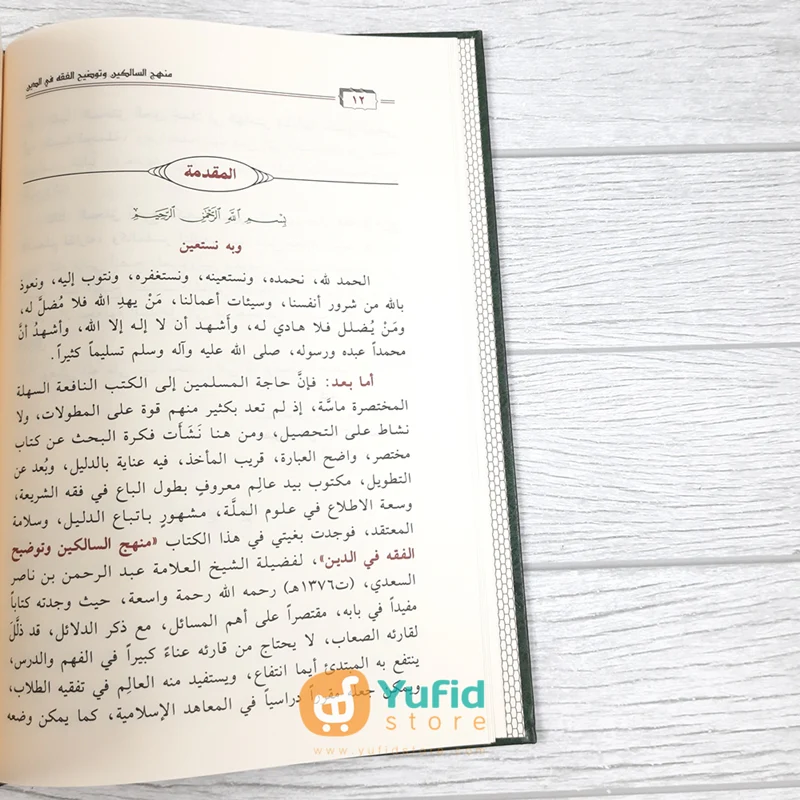 منهج السالكين وتوضيح الفقه في الدين
١٢
المقدمة
بسم الله الرحمن الرحيم
وبه نستعين
الحمد لله، نحمده، ونستعينه، ونستغفره، ونتوب إليه، ونعوذ
بالله من شرور أنفسنا، وسيئات أعمالنا، مَنْ يهدِ الله فلا مُضلَّ له،
ومَنْ يُضلل فلا هادي له، وأَشهد أن لا إله إلا الله، وأشهدُ أنَّ
محمداً عبده ورسوله، صلى الله عليه وآله وسلم تسليماً كثيراً.
أما بعد: فإنَّ حاجة المسلمين إلى الكتب النافعة السهلة
المختصرة ماسَّة، إذ لم تعد بكثير منهم قوة على المطولات، ولا
نشاط على التحصيل، ومن هنا نَشَأَت فكرة البحث عن كتاب
مختصر، واضح العبارة، قريب المأخذ، فيه عناية بالدليل، وبُعد عن
التطويل، مكتوب بيد عالِم معروفٍ بطول الباع في فقه الشريعة،
وسعة الاطلاع في علوم الملَّة، مشهورٍ باتباع الدليل، وسلامة
المعتقد، فوجدت بغيتي في هذا الكتاب «منهج السالكين وتوضيح
الفقه في الدين»، لفضيلة الشيخ العلامة عبد الرحمن بن ناصر
السعدي، (ت١٣٧٦هـ) رحمه الله رحمة واسعة، حيث وجدته كتاباً
مفيداً في بابه، مقتصراً على أهم المسائل، مع ذكر الدلائل، قد ذلَّلَ
لقارئه الصعاب، لا يحتاج من قارئه عناءً كبيراً في الفهم والدرس،
ينتفع به المبتدئ أيما انتفاع، ويستفيد منه العالِم في تفقيه الطلاب،
ويمكن جعله مقرراً دراسياً في المعاهد الإسلامية، كما يمكن وضعه
Yufid
store
www.yufidstore.com